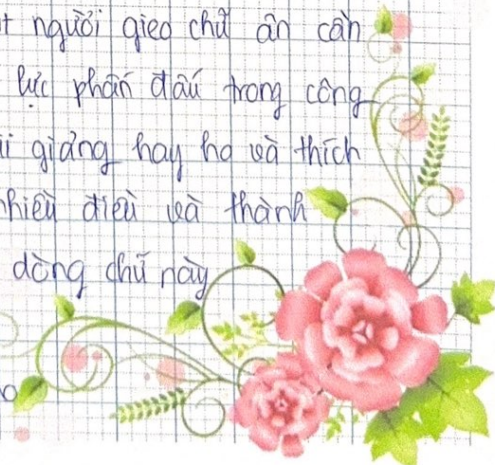 người gieo chữ ân cần
lực phấn đấu trong công
giảng hay ho và thích
điều và thành
dòng chữ này